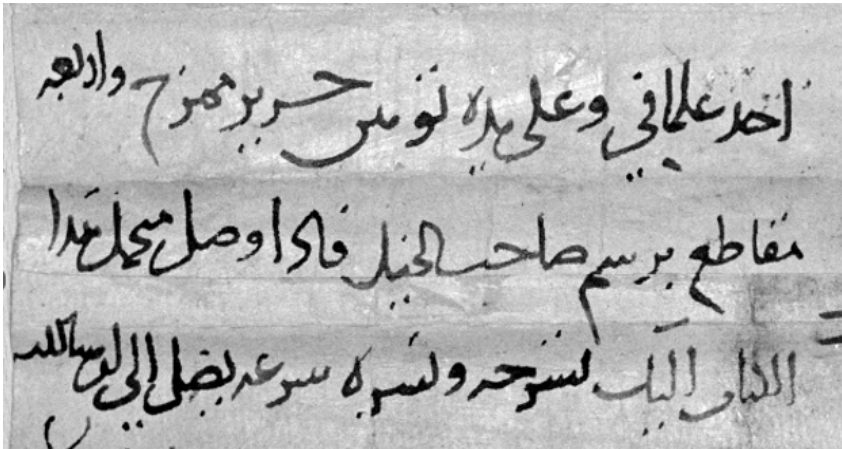 اخذ علمانى وعلى يده ثومين حرير مهرج واربعه
مقاطع برسم صاحب الخيل فاذا وصل محمل هذا
الكتاب اليك تسرحه وتسيره سرعه يصل الى